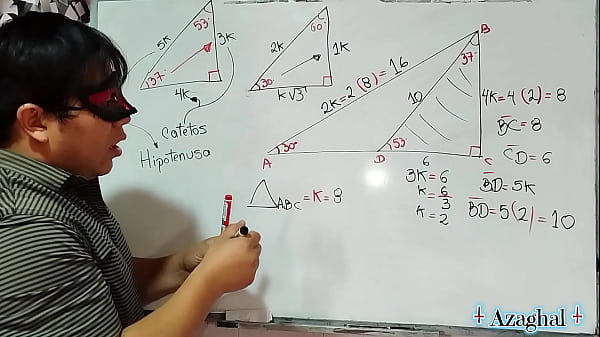 5K
53°
3K
37°
4K
Catetos
Hipotenusa
2K
60°
1K
30°
K√3
B
37°
2K=2(8)=16
10
4K=4(2)=8
A
30°
D
53°
C
6
BC=8
CD=6
3K=6
K=6/3
K=2
BD=5K
BD=5(2)=10
ABC=K=8
Azaghal